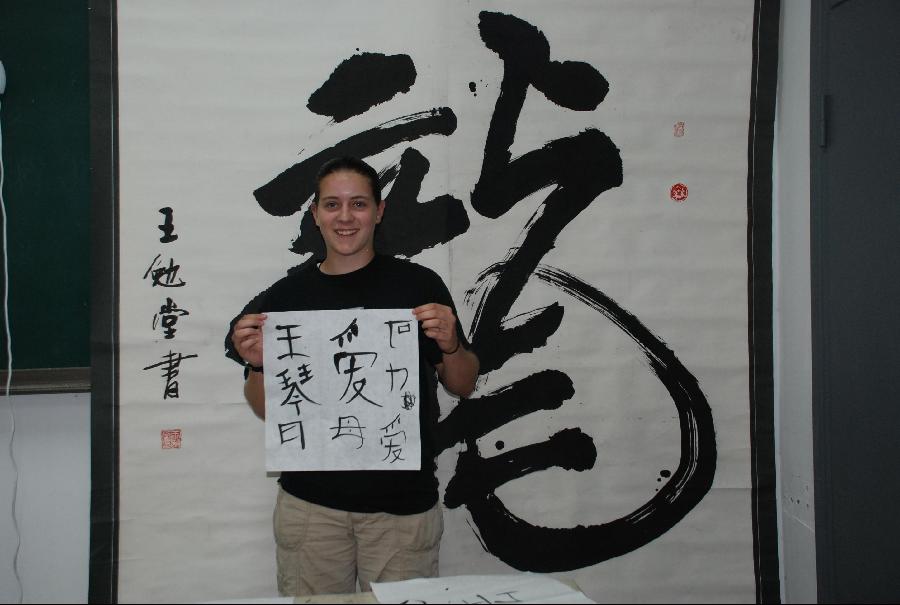 龍
王勉堂書
石力爱
爱母
王琴日